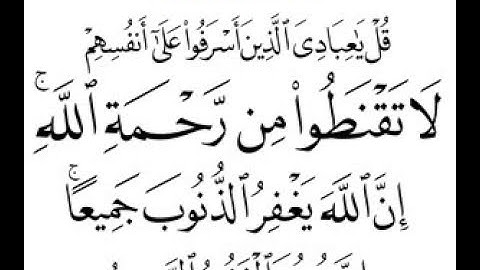 قُلْ يَٰعِبَادِىَ ٱلَّذِينَ أَسْرَفُوا۟ عَلَىٰٓ أَنفُسِهِمْ
لَا تَقْنَطُوا۟ مِن رَّحْمَةِ ٱللَّهِ ۚ
إِنَّ ٱللَّهَ يَغْفِرُ ٱلذُّنُوبَ جَمِيعًا ۚ